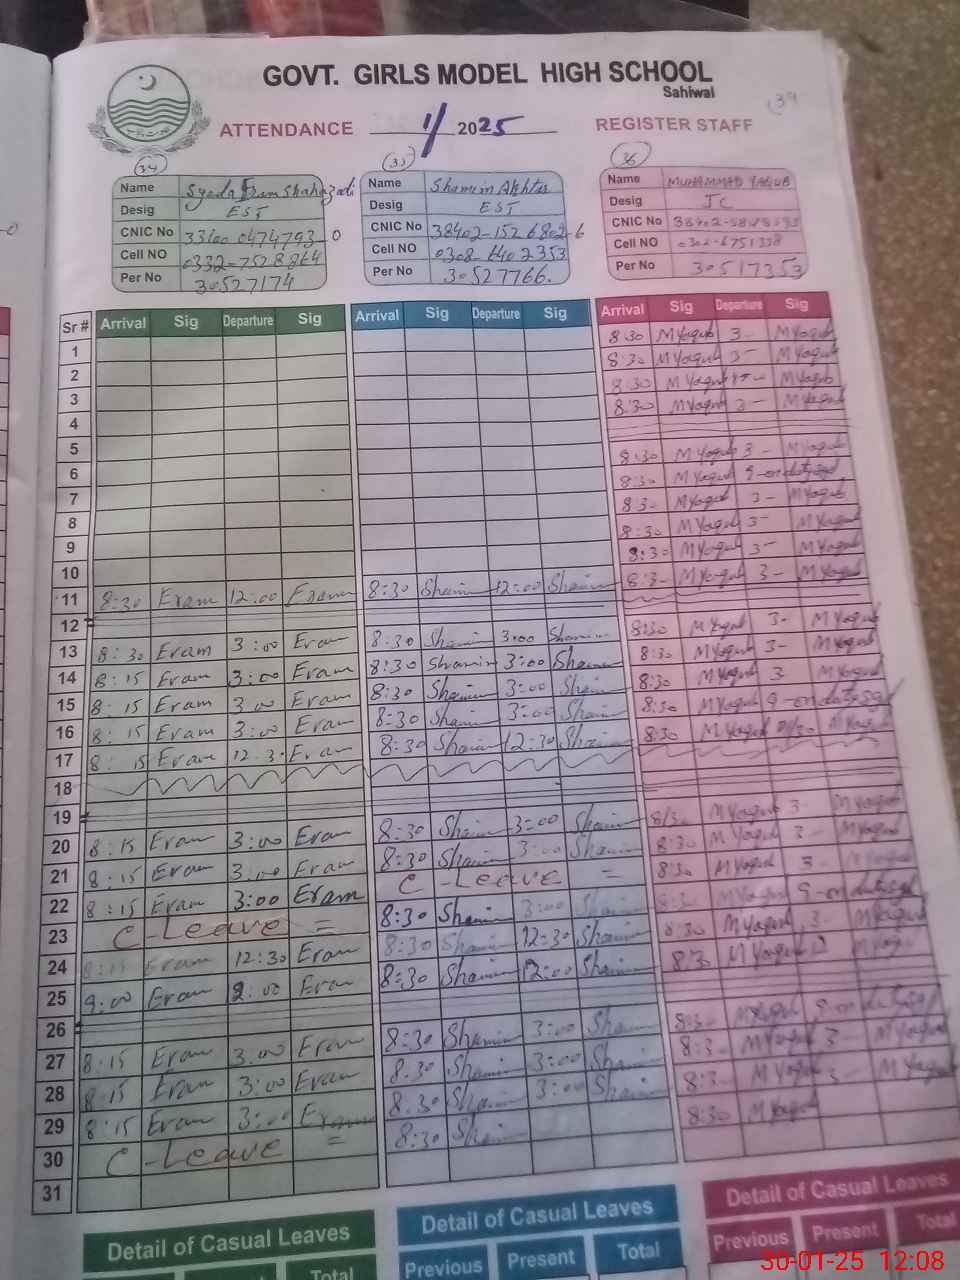 GOVT. GIRLS MODEL HIGH SCHOOL
Sahiwal
39
ATTENDANCE 1/ 2025 REGISTER STAFF
34 35 36
Name Syeda Erum Shahazadi Name Shamim Akhtar Name MUHAMMAD YAQUB
Desig EST Desig EST Desig JC
CNIC No 33100 0474793-0 CNIC No 38402-1526802-6 CNIC No
Cell NO 0332-7528864 Cell NO 0308-6402353 Cell NO 0302-6751338
Per No 30527174 Per No 30527766. Per No 30517353
Sr # Arrival Sig Departure Sig Arrival Sig Departure Sig Arrival Sig Departure Sig
8:30 M Yaqub 3- M Yaqub
1 8:30 M Yaqub 3- M Yaqub
2 8:30 M Yaqub M Yaqub
3 8:30 M Yaqub 3- M Yaqub
4
5 8:30 M Yaqub 3- M Yaqub
6 8:30 M Yaqub
7 8:3- M Yaqub 3- M Yaqub
8 8:30 M Yaqub 3- M Yaqub
9 8:30 M Yaqub 3- M Yaqub
10 8:3- M Yaqub 3- M Yaqub
11 8:30 Eram 12:00 Eram 8:30 Shamim 12:00 Shamim
12 8:30 M Yaqub 3- M Yaqub
13 8:30 Eram 3:00 Eram 8:30 Shamim 3:00 Shamim 8:30 M Yaqub 3- M Yaqub
14 8:15 Eram 3:00 Eram 8:30 Shamim 3:00 Shamim 8:30 M Yaqub 3 M Yaqub
15 8:15 Eram 3:00 Eram 8:30 Shamim 3:00 Shamim 8:30 M Yaqub
16 8:15 Eram 3:00 Eram 8:30 Shamim 3:00 Shamim 8:30 M Yaqub M Yaqub
17 8:15 Eram 12:30 Eram 8:30 Shamim 12:30 Shamim
18
19 8:30 M Yaqub 3- M Yaqub
20 8:15 Eram 3:00 Eram 8:30 Shamim 3:00 Shamim 8:30 M Yaqub 3- M Yaqub
21 8:15 Eram 3:00 Eram 8:30 Shamim 3:00 Shamim 8:30 M Yaqub 3- M Yaqub
22 8:15 Eram 3:00 Eram C-Leave = 8:30 M Yaqub
23 C-Leave = 8:30 Shamim 3:00 Shamim 8:30 M Yaqub 3 M Yaqub
24 8:15 Eram 12:30 Eram 8:30 Shamim 12:30 Shamim 8:30 M Yaqub
25 9:00 Eram 2:00 Eram 8:30 Shamim 12:00 Shamim
26 8:3- M Yaqub
27 8:15 Eram 3:00 Eram 8:30 Shamim 3:00 Shamim 8:3- M Yaqub 3- M Yaqub
28 8:15 Eram 3:00 Eram 8:30 Shamim 3:00 Shamim 8:3- M Yaqub 3- M Yaqub
29 8:15 Eram 3:00 Eram 8:30 Shamim 3:00 Shamim 8:30 M Yaqub
30 C-Leave = 8:30 Shamim
31
Detail of Casual Leaves Detail of Casual Leaves Detail of Casual Leaves
Total Previous Present Total Previous Present Total
30-01-25 12:08